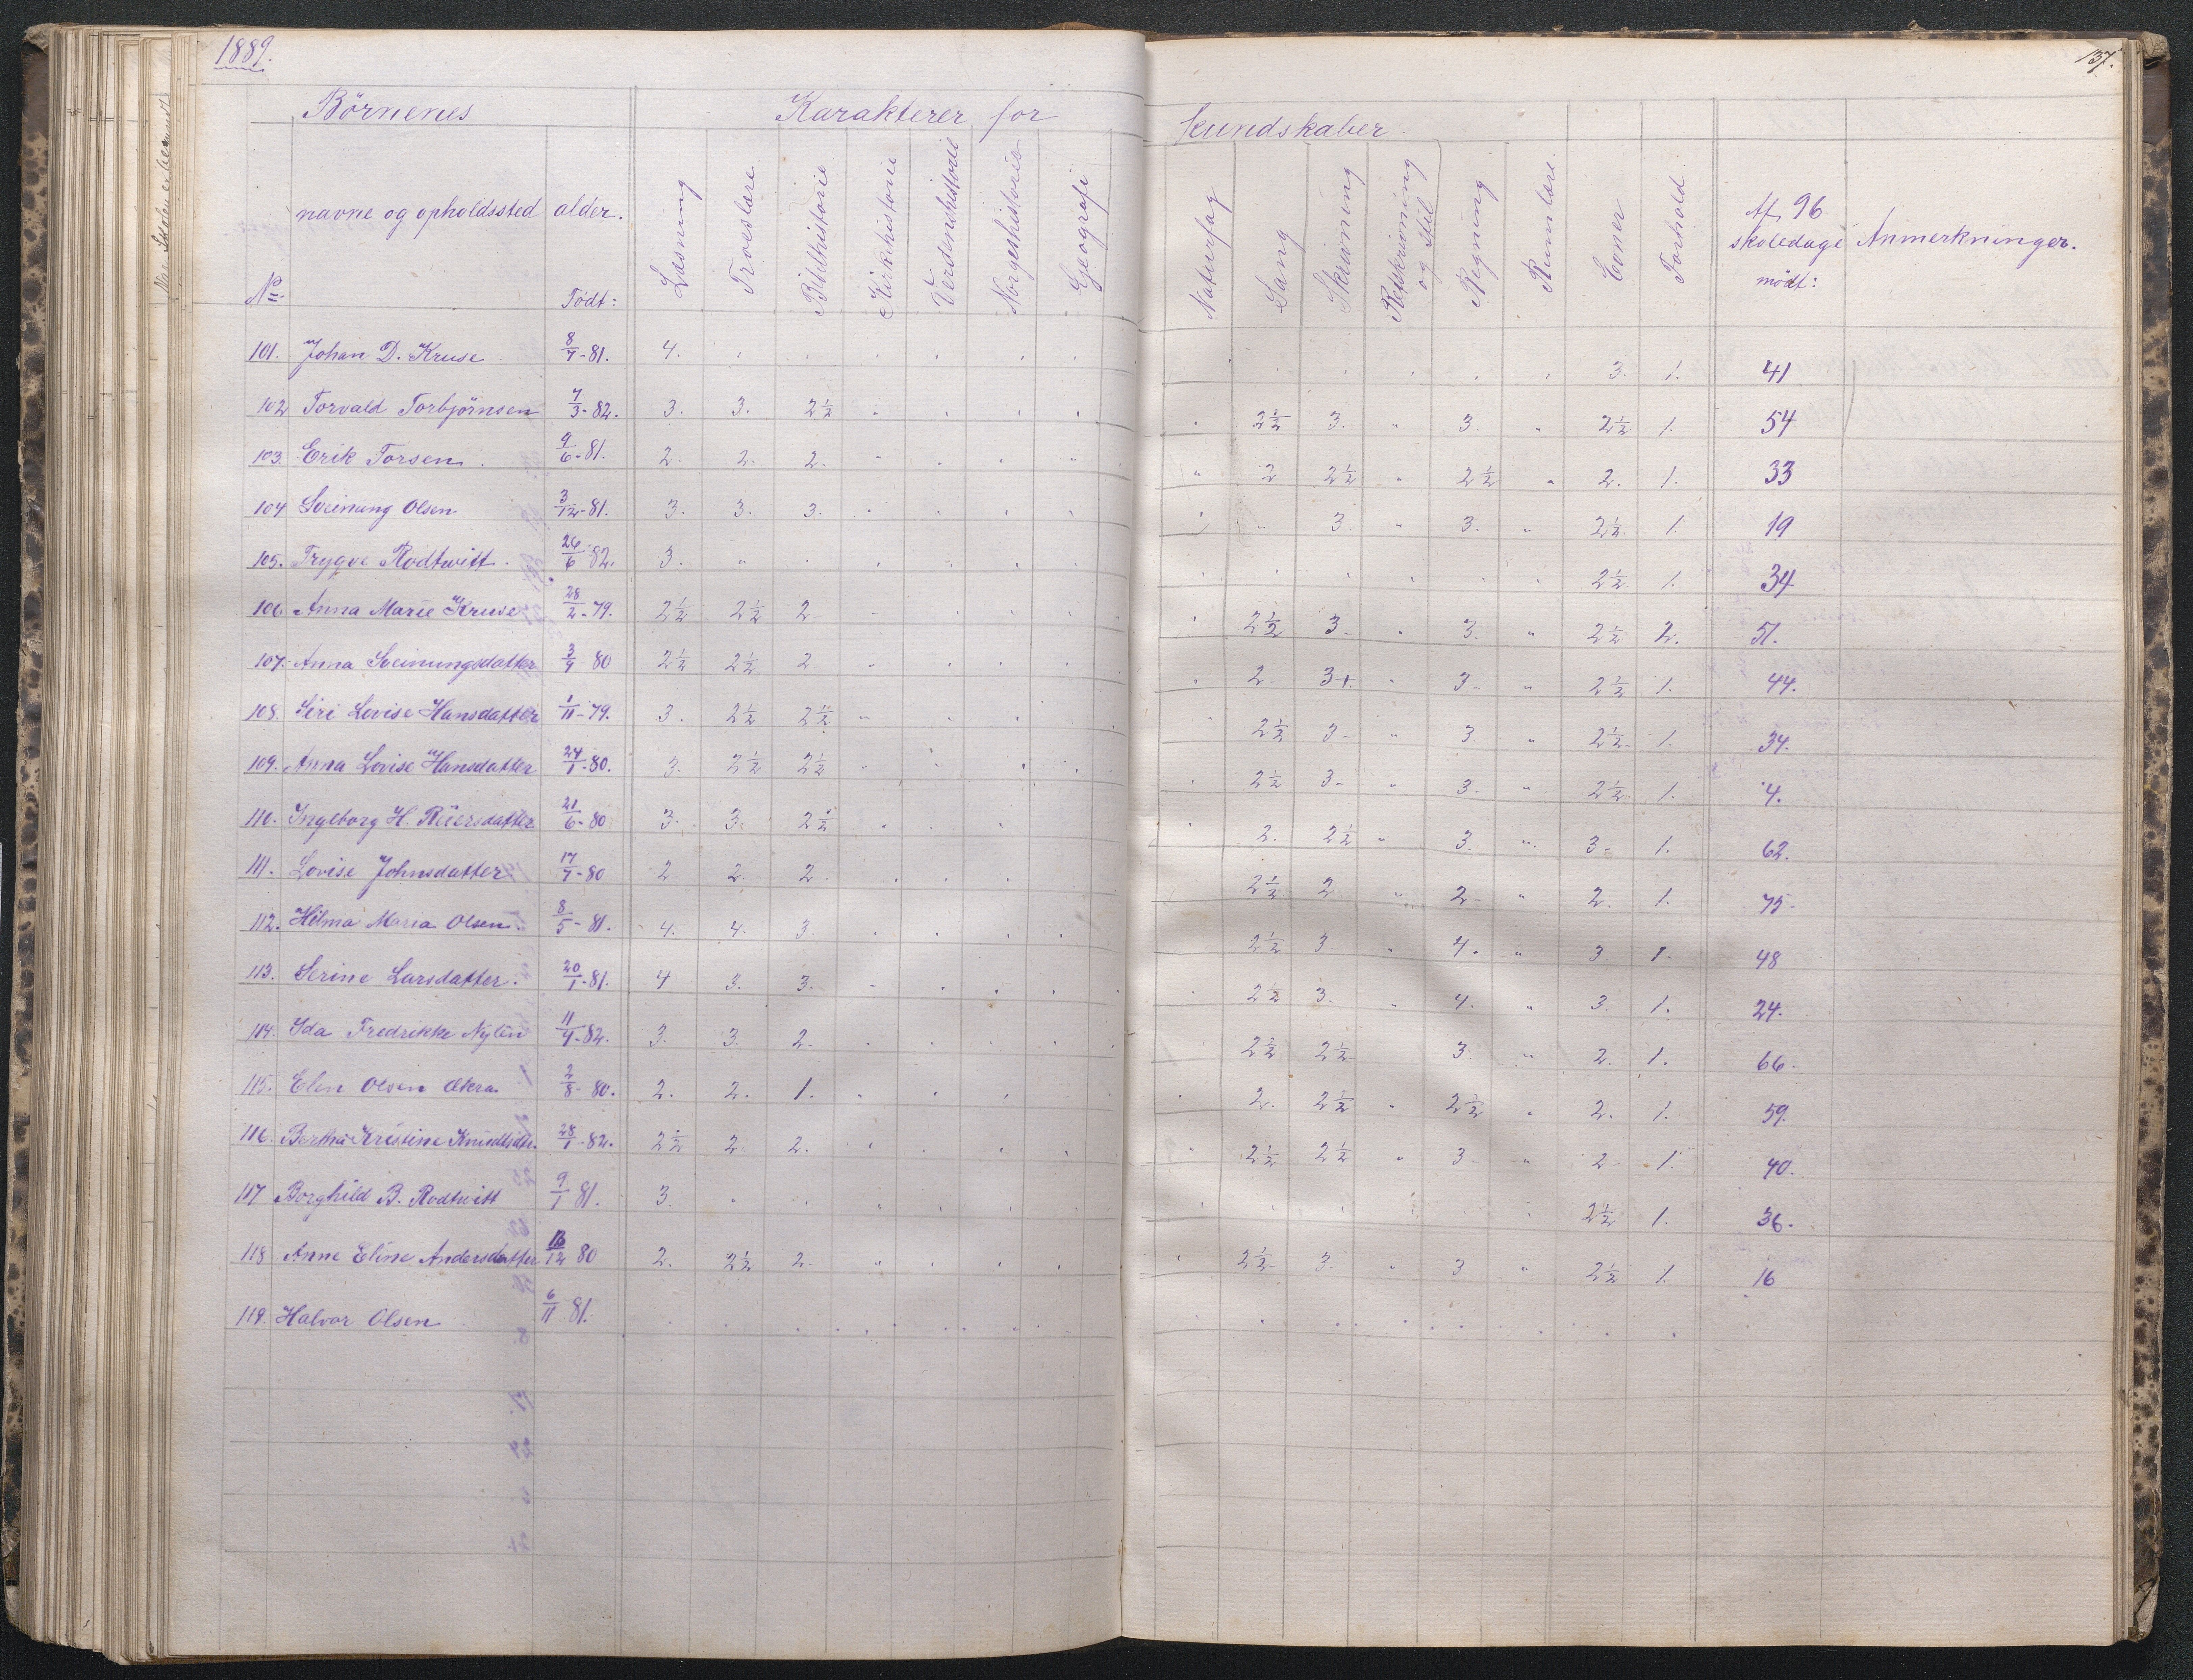 1889.
137.
Börnenes Karakterer for kundskaber.
No navne og opholdssted alder. Födt: Læsning Troeslære Bibelhistorie Kirkehistorie Verdenshistorie Norgeshistorie Geografi Naturfag Sang Skrivning Retskrivning og Stil Regning Rumlære. Evner Forhold Af 96 skoledage mödt: Anmerkninger.
101. Johan D. Kruse 8/7-81. 4. 3. 1. 41
102 Torvald Torbjörnsen 7/3-82. 3. 3. 2½ 2½ 3. " 3. " 2½ 1. 54
103. Erik Torsen. 9/6-81. 2. 2. 2. " 2 2½ " 2½ " 2. 1. 33
104 Sveinung Olsen 3/12-81. 3. 3. 3. " 3. " 3. " 2½ 1. 19
105. Trygve Rodtwitt. 26/6 82. 3. " 2½ 1. 34
106. Anna Marie Kruse 28/2-79. 2½ 2½ 2 2½ 3. " 3. " 2½ 2. 51.
107. Anna Sveinungsdatter 3/9 80 2½ 2½ 2 2. 3+. " 3- " 2½ 1. 44.
108. Siri Lovise Hansdatter 1/11-79. 3. 2½ 2½ " 2½ 3- " 3. " 2½ 1. 34.
109. Anna Lovise Hansdatter 24/1-80. 3. 2½ 2½ 2½ 3- " 3- " 2½ 1. 4.
110. Ingeborg H. Reiersdatter 21/6-80 3. 3. 2½ 2. 2½ " 3. " 3- 1. 62.
111. Lovise Johnsdatter 17/7-80 2 2. 2. 2½ 2 " 2- " 2. 1. 75-
112. Hilma Maria Olsen. 8/5-81. 4. 4. 3. 2½ 3 " 4. " 3 1- 48
113. Serine Larsdatter. 20/1-81. 4 3. 3. 2½ 3. " 4. " 3. 1. 24.
114. Ida Fredrikke Nylén 11/4-82. 3. 3. 2. 2½ 2½ 3. " 2. 1. 66.
115. Elen Olsen Akra 2/8-80. 2. 2. 1. 2. 2½ " 2½ " 2. 1. 59.
116. Bertha Kristine Knudtsdtr. 28/1-82. 2½ 2. 2. 2½ 2½ " 3- " 2 1. 40.
117 Borghild B. Rodtwitt 9/1 81. 3. " 2½ 1. 36.
118 Anne Eline Andersdatter 16/12 80 2. 2½ 2. " 2½ 3. " 3 " 2½ 1. 16
119. Halvor Olsen 6/11 81.